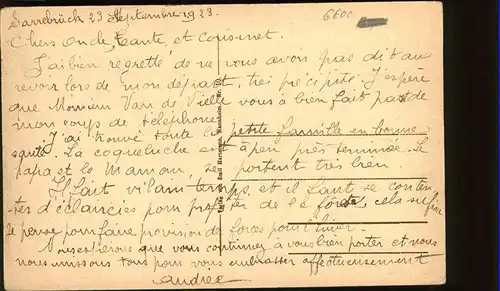 Sarrebrück 23 Septembre 1923.
6600
Chers Oncle, Tante, et cousinet.
J'ai bien regretté de ne vous avoir pas dit au
revoir lors de mon départ, très précipité. J'espère
que Monsieur Van de Vielle vous a bien fait part de
mon coup de téléphone.
J'ai trouvé toute la petite famille en bonne
santé. La coqueluche est à peu près terminée. Le
papa et la Maman, se portent très bien.
Il fait vilain temps, et il faut se conten-
ter d'éclaircies pour profiter de la cela suffira
Je pense pour faire provision de forces pour l'hiver.
Nous espérons que vous continuez à vous bien porter et nous
nous unissons tous pour vous embrasser affectueusement
Andrée